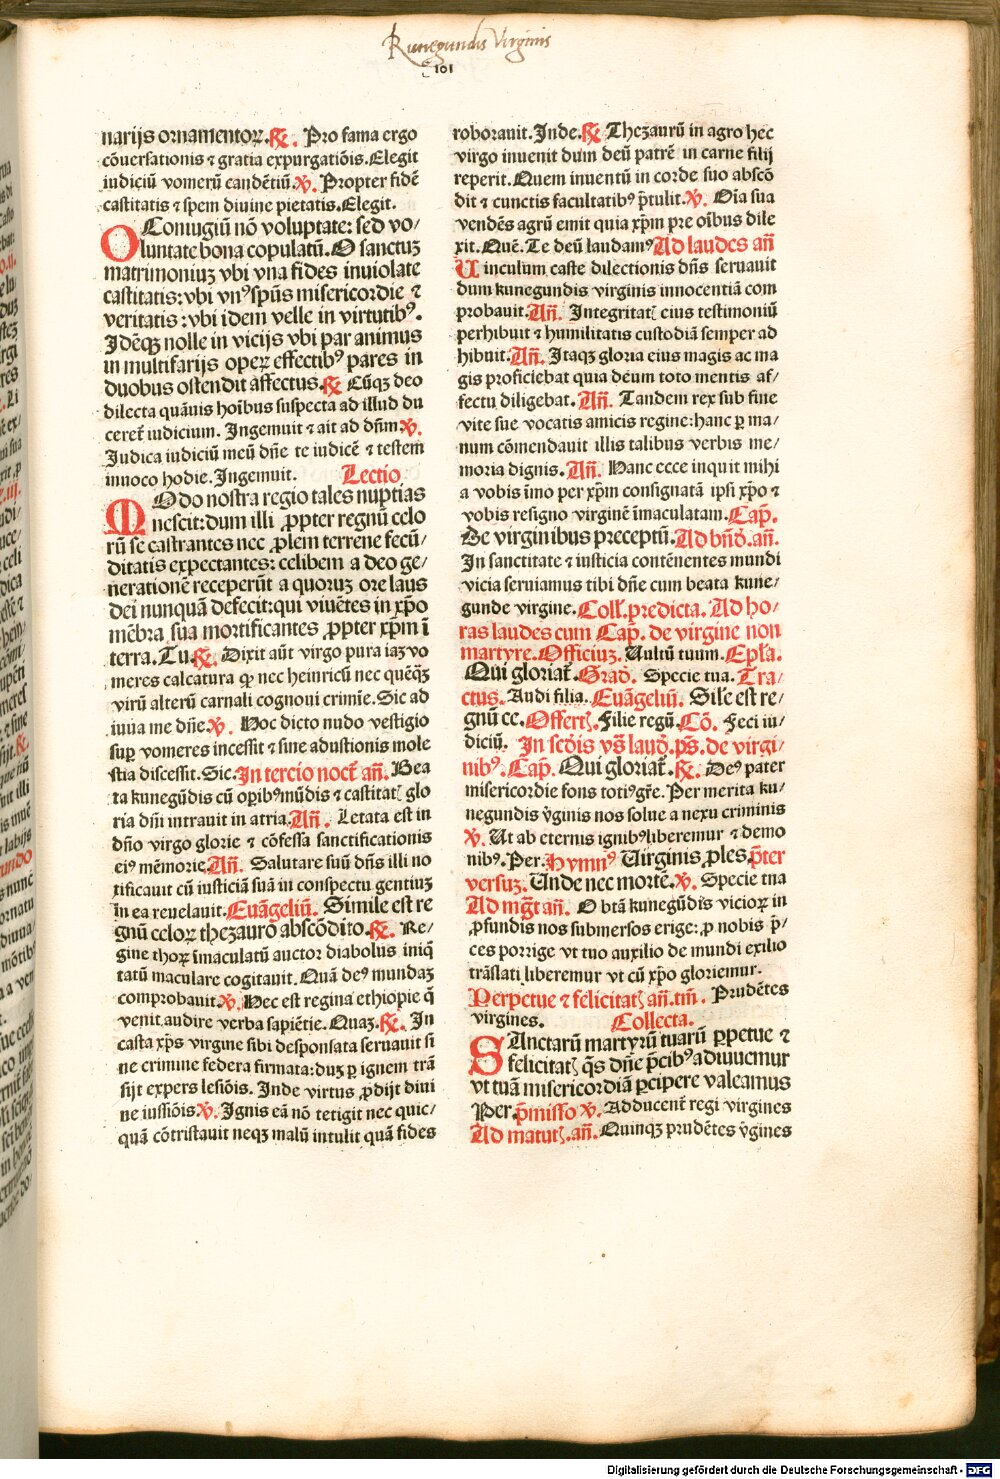 Kunegundis Virginis
101
narijs ornamentoꝝ. ℟. Pro fama ergo
cōuersationis ⁊ gratia expurgatiōis. Elegit
iudiciū vomerū candētiū. ℣. Propter fidē
castitatis ⁊ spem diuine pietatis. Elegit.
O Coniugiū nō voluptate: sed vo/
luntate bona copulatū. O sanctuꝫ
matrimoniuꝫ vbi vna fides inuiolate
castitatis: vbi vnꝰ spūs misericordie ⁊
veritatis: vbi idem velle in virtutibꝰ.
Idēqꝫ nolle in vicijs vbi par animus
in multifarijs operꝝ effectibꝰ pares in
duobus ostendit affectus. ℟ Cūqꝫ deo
dilecta quāuis hoībus suspecta ad illud du
ceret̄ iudicium. Ingemuit ⁊ ait ad dn̄m ℣.
Iudica iudiciū meū dn̄e te iudicē ⁊ testem
innoco hodie. Ingemuit. Lectio
MOdo nostra regio tales nuptias
nescit: dum illi ꝓpter regnū celo
rū se castrantes nec ꝓlem terrene fecū/
ditatis expectantes: celibem a deo ge/
nerationē receperūt a quoruꝫ ore laus
dei nunquā defecit: qui viuētes in xp̄o
mēbra sua mortificantes ꝓpter xp̄m ī
terra. Tu. ℟. Dixit aūt virgo pura iaꝫ vo
meres calcatura ꝙ nec heinricū nec quēqꝫ
virū alterū carnali cognoui crimīe. Sic ad
iuua me dn̄e. ℣. Hoc dicto nudo vestigio
suꝑ vomeres incessit ⁊ sine adustionis mole
stia discessit. Sic. In tercio noct̄ an̄. Bea
ta kunegūdis cū oꝑibꝰ mūdis ⁊ castitatꝭ glo
ria dn̄i intrauit in atria. An̄. Letata est in
dn̄o virgo glorie ⁊ cōfessa sanctificationis
eiꝰ mēmorie. An̄. Salutare suū dn̄s illi no
tificauit cū iusticiā suā in conspectu gentiuꝫ
in ea reuelauit. Euāgeliū. Simile est re
gnū celoꝝ thezauro abscōdito. ℟. Re/
gine thoꝝ īmaculatū auctor diabolus iniq̄
tatū maculare cogitauit. Quā deꝰ mundaꝫ
comprobauit. ℣. Hec est regina ethiopie q̄
venit audire verba sapiētie. Quaꝫ. ℟. In
casta xp̄s virgine sibi desponsata seruauit si
ne crimine federa firmata: duꝫ ꝑ ignem trā
sijt expers lesiōis. Inde virtus ꝓdijt diui
ne iussiōis ℣. Ignis eā nō tetigit nec quic/
quā cōtristauit neqꝫ malū intulit quā fides
roborauit. Inde. ℟ Thezaurū in agro hec
virgo inuenit dum deū patrē in carne filij
reperit. Quem inuentū in corde suo abscō
dit ⁊ cunctis facultatibꝰ p̄tulit. ℣. Oīa sua
vendēs agrū emit quia xp̄m pre oībus dile
xit. Quē. Te deū laudamꝰ Ad laudes an̄
Uinculum caste dilectionis dn̄s seruauit
dum kunegundis virginis innocentiā com
probauit. An̄. Integritatꝭ eius testimoniū
perhibuit ⁊ humilitatis custodiā semper ad
hibuit. An̄. Itaqꝫ gloria eius magis ac ma
gis proficiebat quia deum toto mentis af/
fectu diligebat. An̄. Tandem rex sub fine
vite sue vocatis amicis regine: hanc ꝑ ma/
num cōmendauit illis talibus verbis me/
moria dignis. An̄. Hanc ecce inquit mihi
a vobis īmo per xp̄m consignatā ipsi xp̄o ⁊
vobis resigno virginē īmaculatam. Cap̄.
De virginibus preceptū. Ad bn̄d̄. an̄.
In sanctitate ⁊ iusticia contēnentes mundi
vicia seruiamus tibi dn̄e cum beata kune/
gunde virgine. Coll̄. predicta. Ad ho/
ras laudes cum Cap̄. de virgine non
martyre. Officiuꝫ. Uultū tuum. Ep̄la.
Qui gloriat̄. Grad̄. Specie tua. Tra/
ctus. Audi filia. Euāgeliū. Sile est re/
gnū ce. Offert̄ꝭ. Filie regū. Cō. Feci iu/
diciū. In scd̄is vs̄ laud̄. ps̄. de virgi/
nibꝰ. Cap̄. Qui gloriat̄. ℟. Deꝰ pater
misericordie fons totiꝰ gr̄e. Per merita ku/
negundis v̄ginis nos solue a nexu criminis
℣. Ut ab eternis ignibꝰ liberemur ⁊ demo
nibꝰ. Per. Hymnꝰ Uirginis ꝓles p̄ter
versuꝫ. Unde nec mortē. ℣. Specie tua
Ad mḡt an̄. O btā kunegūdis vicioꝝ in
ꝓfundis nos submersos erige: ꝓ nobis p̄/
ces porrige vt tuo auxilio de mundi exilio
trāslati liberemur vt cū xp̄o gloriemur.
Perpetue ⁊ felicitatꝭ an̄. tm̄. Prudētes
virgines. Collecta.
SAnctarū martyrū tuarū ꝑpetue ⁊
felicitatꝭ q̄s dn̄e p̄cibꝰ adiuuemur
vt tuā misericordiā ꝑcipere valeamus
Per. p̄misso ℣. Adducent̄ regi virgines
Ad matutꝭ. an̄. Quinqꝫ prudētes v̄gines
Digitalisierung gefördert durch die Deutsche Forschungsgemeinschaft - DFG